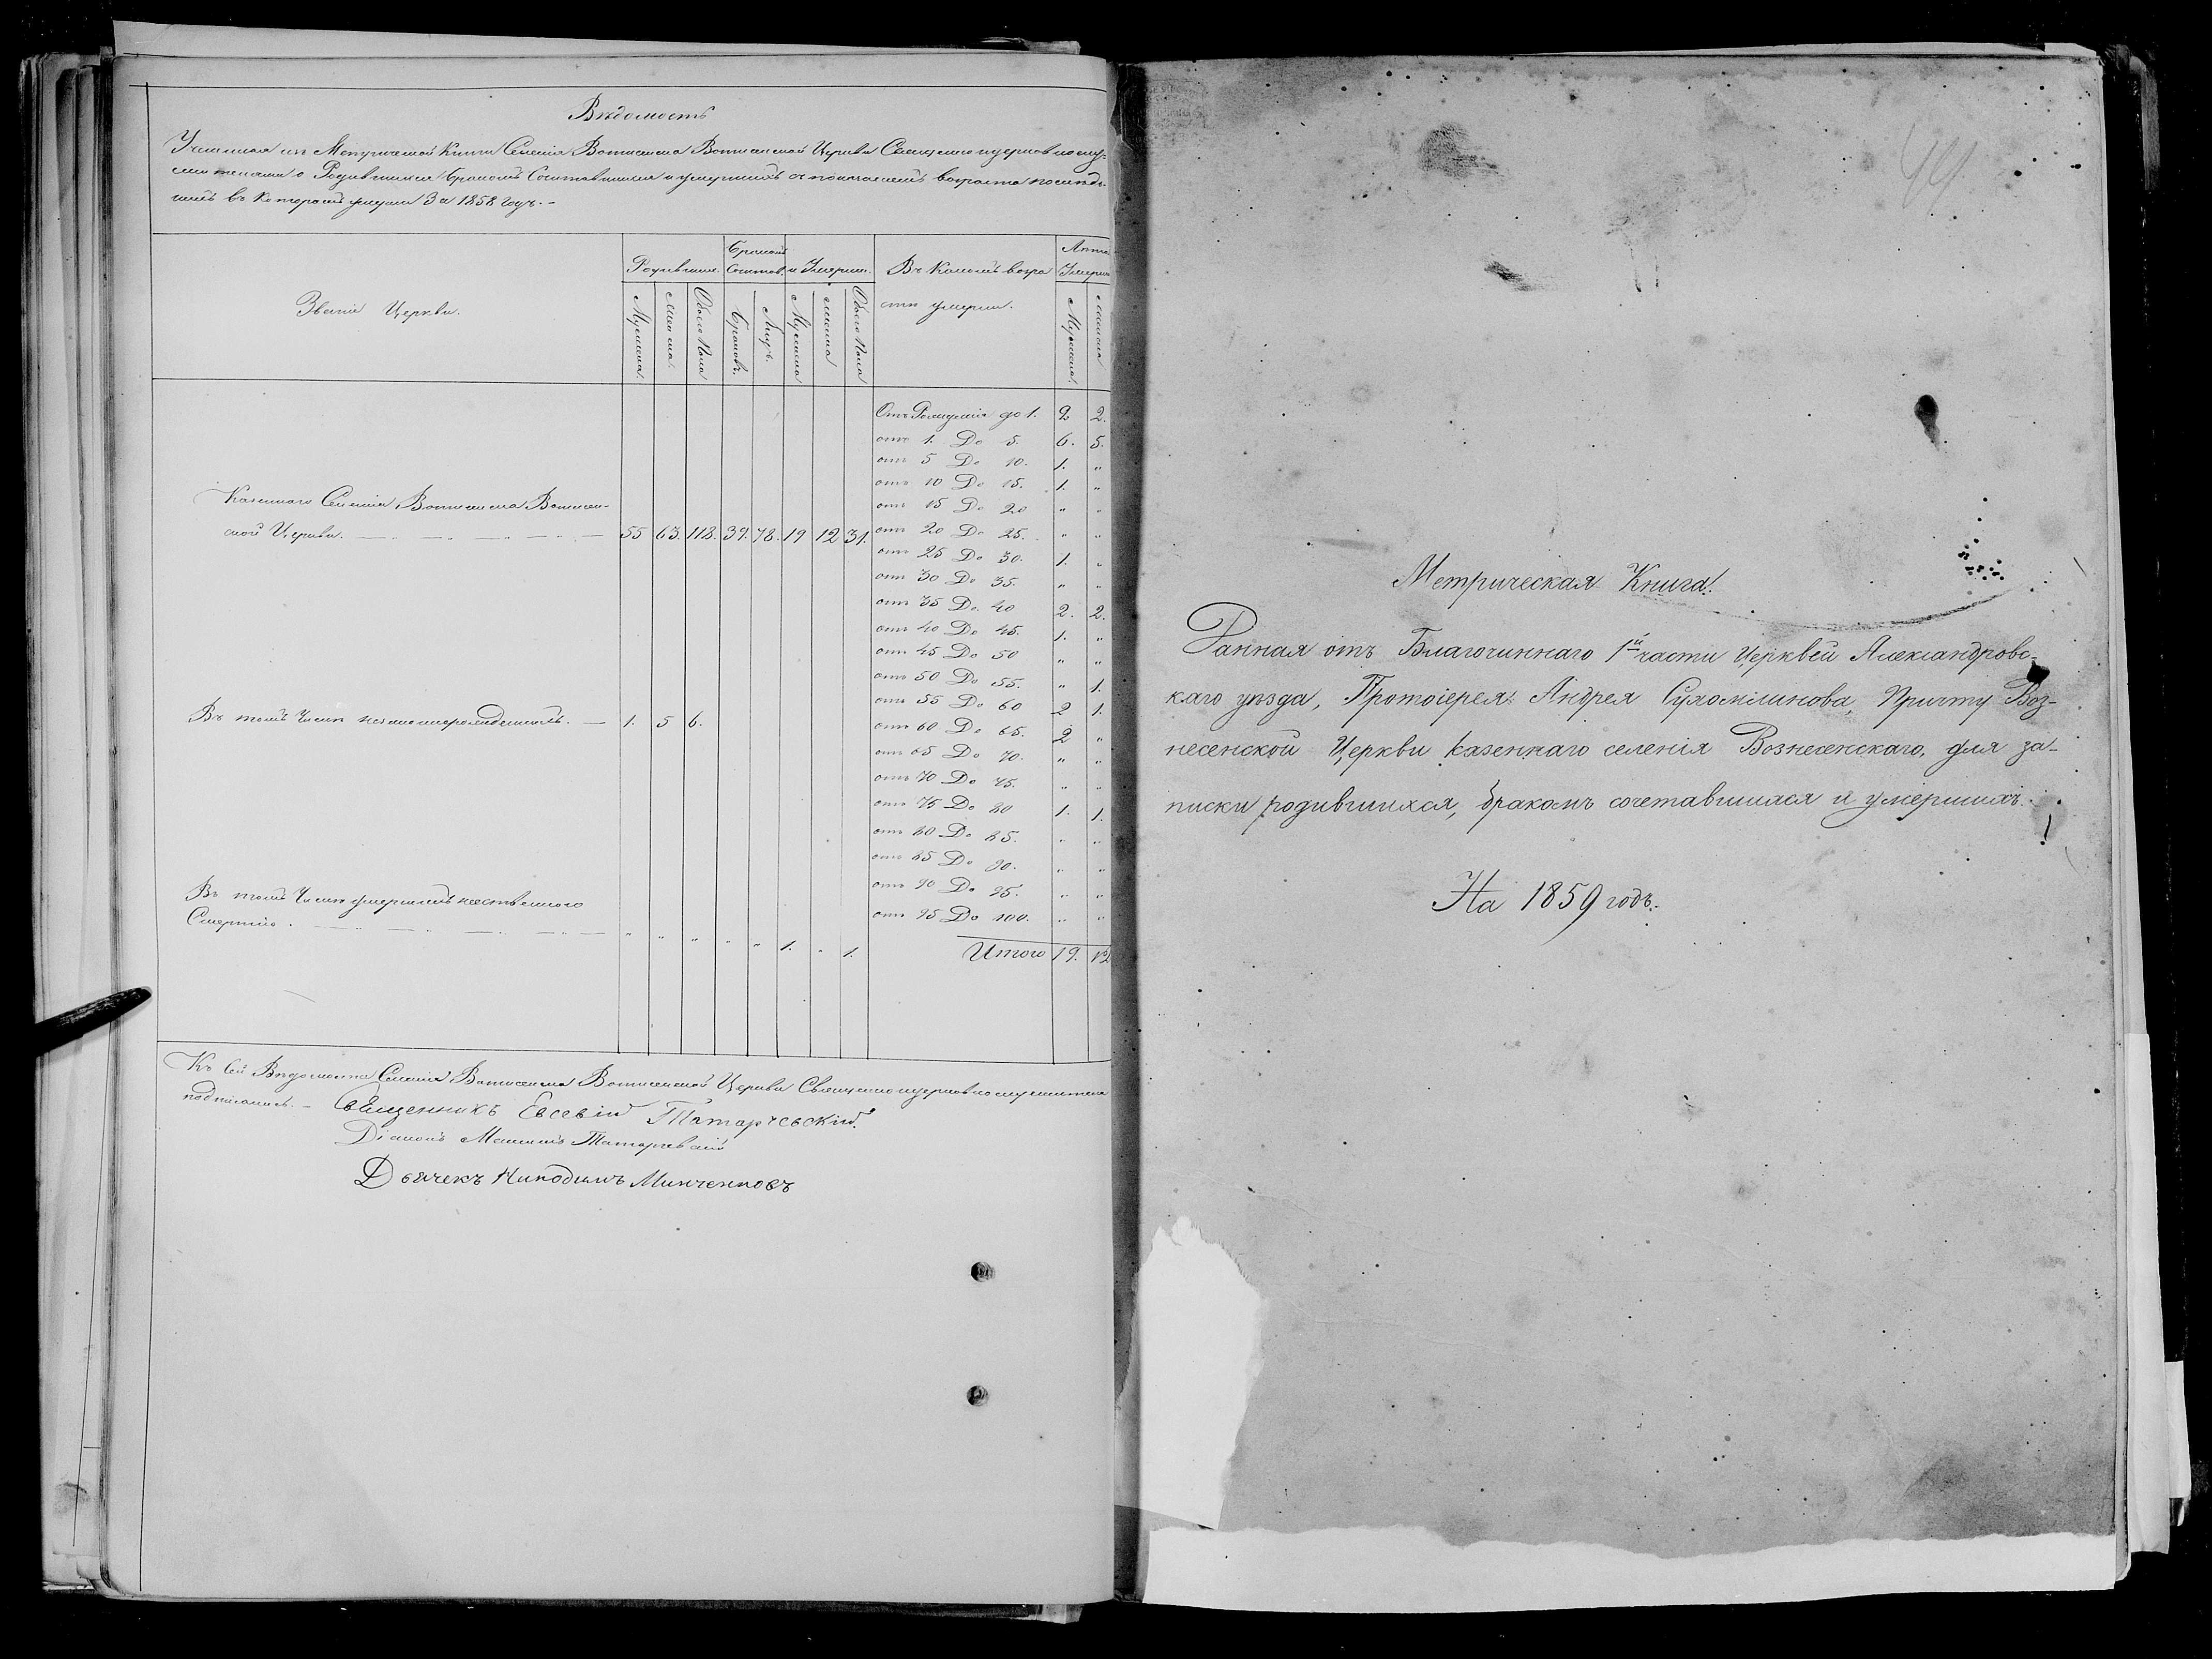 Вѣдомость
Учиненная изъ Метрической Книги Селенія Вознесенска Вознесенской Церкви Священноцерковнослу-
жителями о Родившихся Бракомъ Сочетавшихся и умершихъ съ показаніемъ возраста
въ Которомъ умерли За 1858 годъ. -
Званіе Церкви.
Родивших.
Бракомъ
Сочетав.
и Умерш.
Въ Какомъ возра
сти умерли.
Умерш
Мужеска.
Женска.
Обоего Пола
Браковъ.
Лицъ.
Мужеска
женска
Обоего Пола
Мужеска.
женска
Казеннаго Селенія Вознесенска Вознесен-
ской Церкви. 55 63. 118. 39. 78. 19 12 31.
Въ томъ Числѣ незаконнорожденныхъ. — 1. 5 6.
Въ томъ Числѣ умершихъ неественного
Смертію. „ „ „ „ „ 1. „ 1.
Отъ Рожденія до 1. 2 2.
отъ 1. До 5. 6. 5.
отъ 5 До 10. 1. „
отъ 10 До 15. 1. „
отъ 15 До 20 „ „
отъ 20 До 25. „ „
отъ 25 До 30. 1. „
отъ 30 До 35. „ „
отъ 35 До 40 2. 2.
отъ 40 До 45. 1. „
отъ 45 До 50 „ „
отъ 50 До 55. „ 1.
отъ 55 До 60 2 1.
отъ 60 До 65. 2 „
отъ 65 До 70. „ „
отъ 70 До 75. „ „
отъ 75 До 80 1. 1.
отъ 80 До 85. „ „
отъ 85 До 90. „ „
отъ 90 До 95. „ „
отъ 95 До 100. „ „
Итого 19. 12
Къ сей Вѣдомости Селенія Вознесенска Вознесенской Церкви Священноцерковнослужители
подписались. - Священникъ Евсевій Татарчевскій.
Діаконъ Татарчевскій
Дьячекъ Никодимъ Минченковъ
Метрическая Книга.
Данная отъ Благочиннаго 1й части Церквей Александровс-
каго уѣзда, Протоіерея Андрея Сухомлинова, Причту Воз-
несенской Церкви казеннаго селенія Вознесенскаго, для за-
писки родившихся, бракомъ сочетавшихся и умершихъ.
На 1859 годъ.